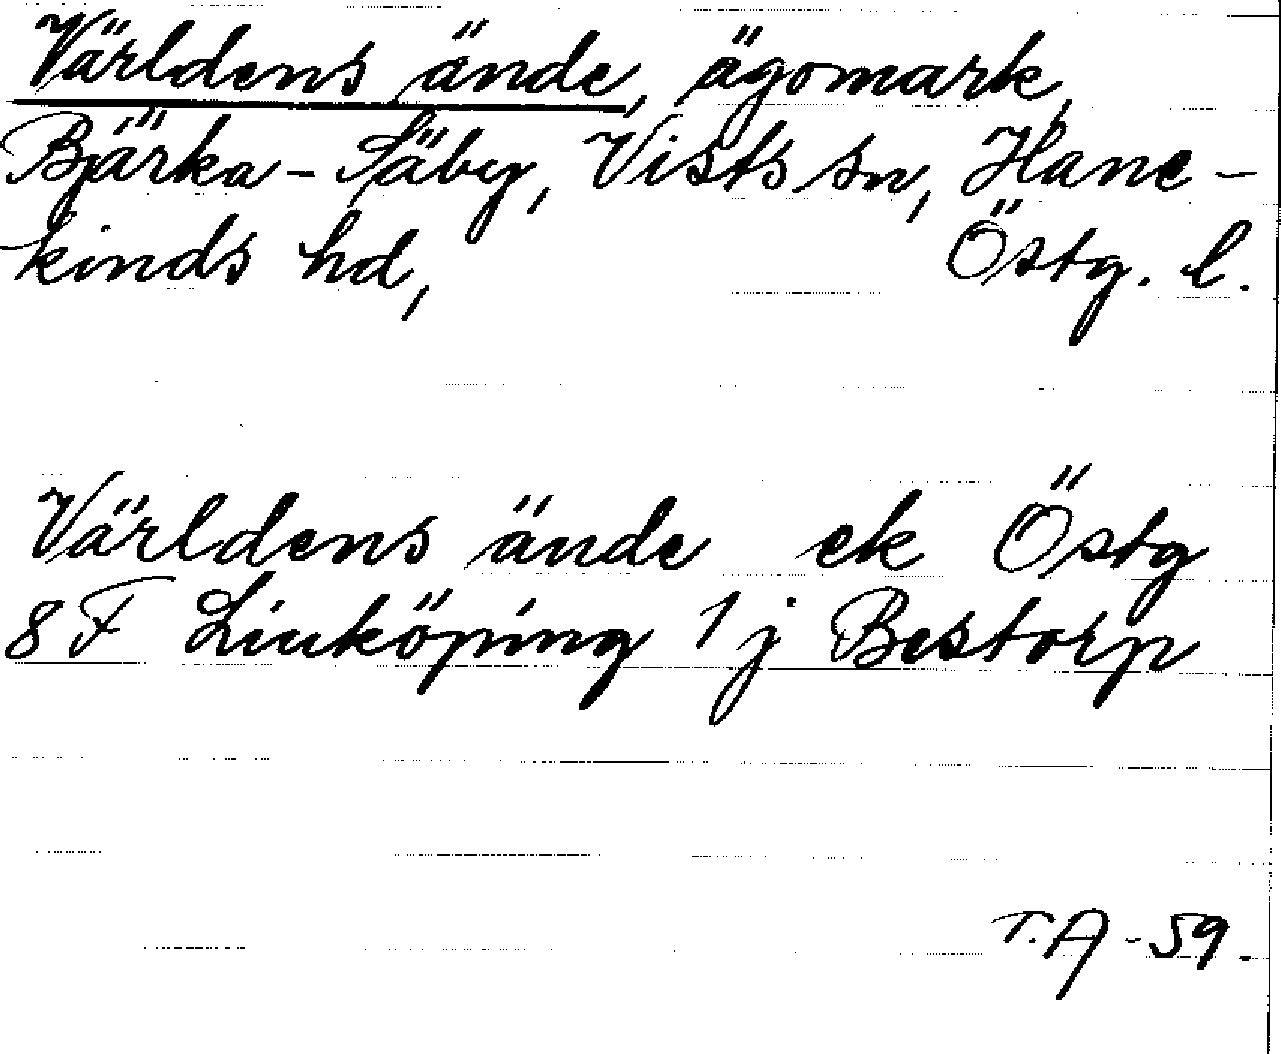 Världens ände, ägomark,
Bjärka-Säby, Vists sn, Hane-
kinds hd, Östg. l.
Världens ände ek Östg
8 F Linköping 1 j Bestorp
T.A -59.